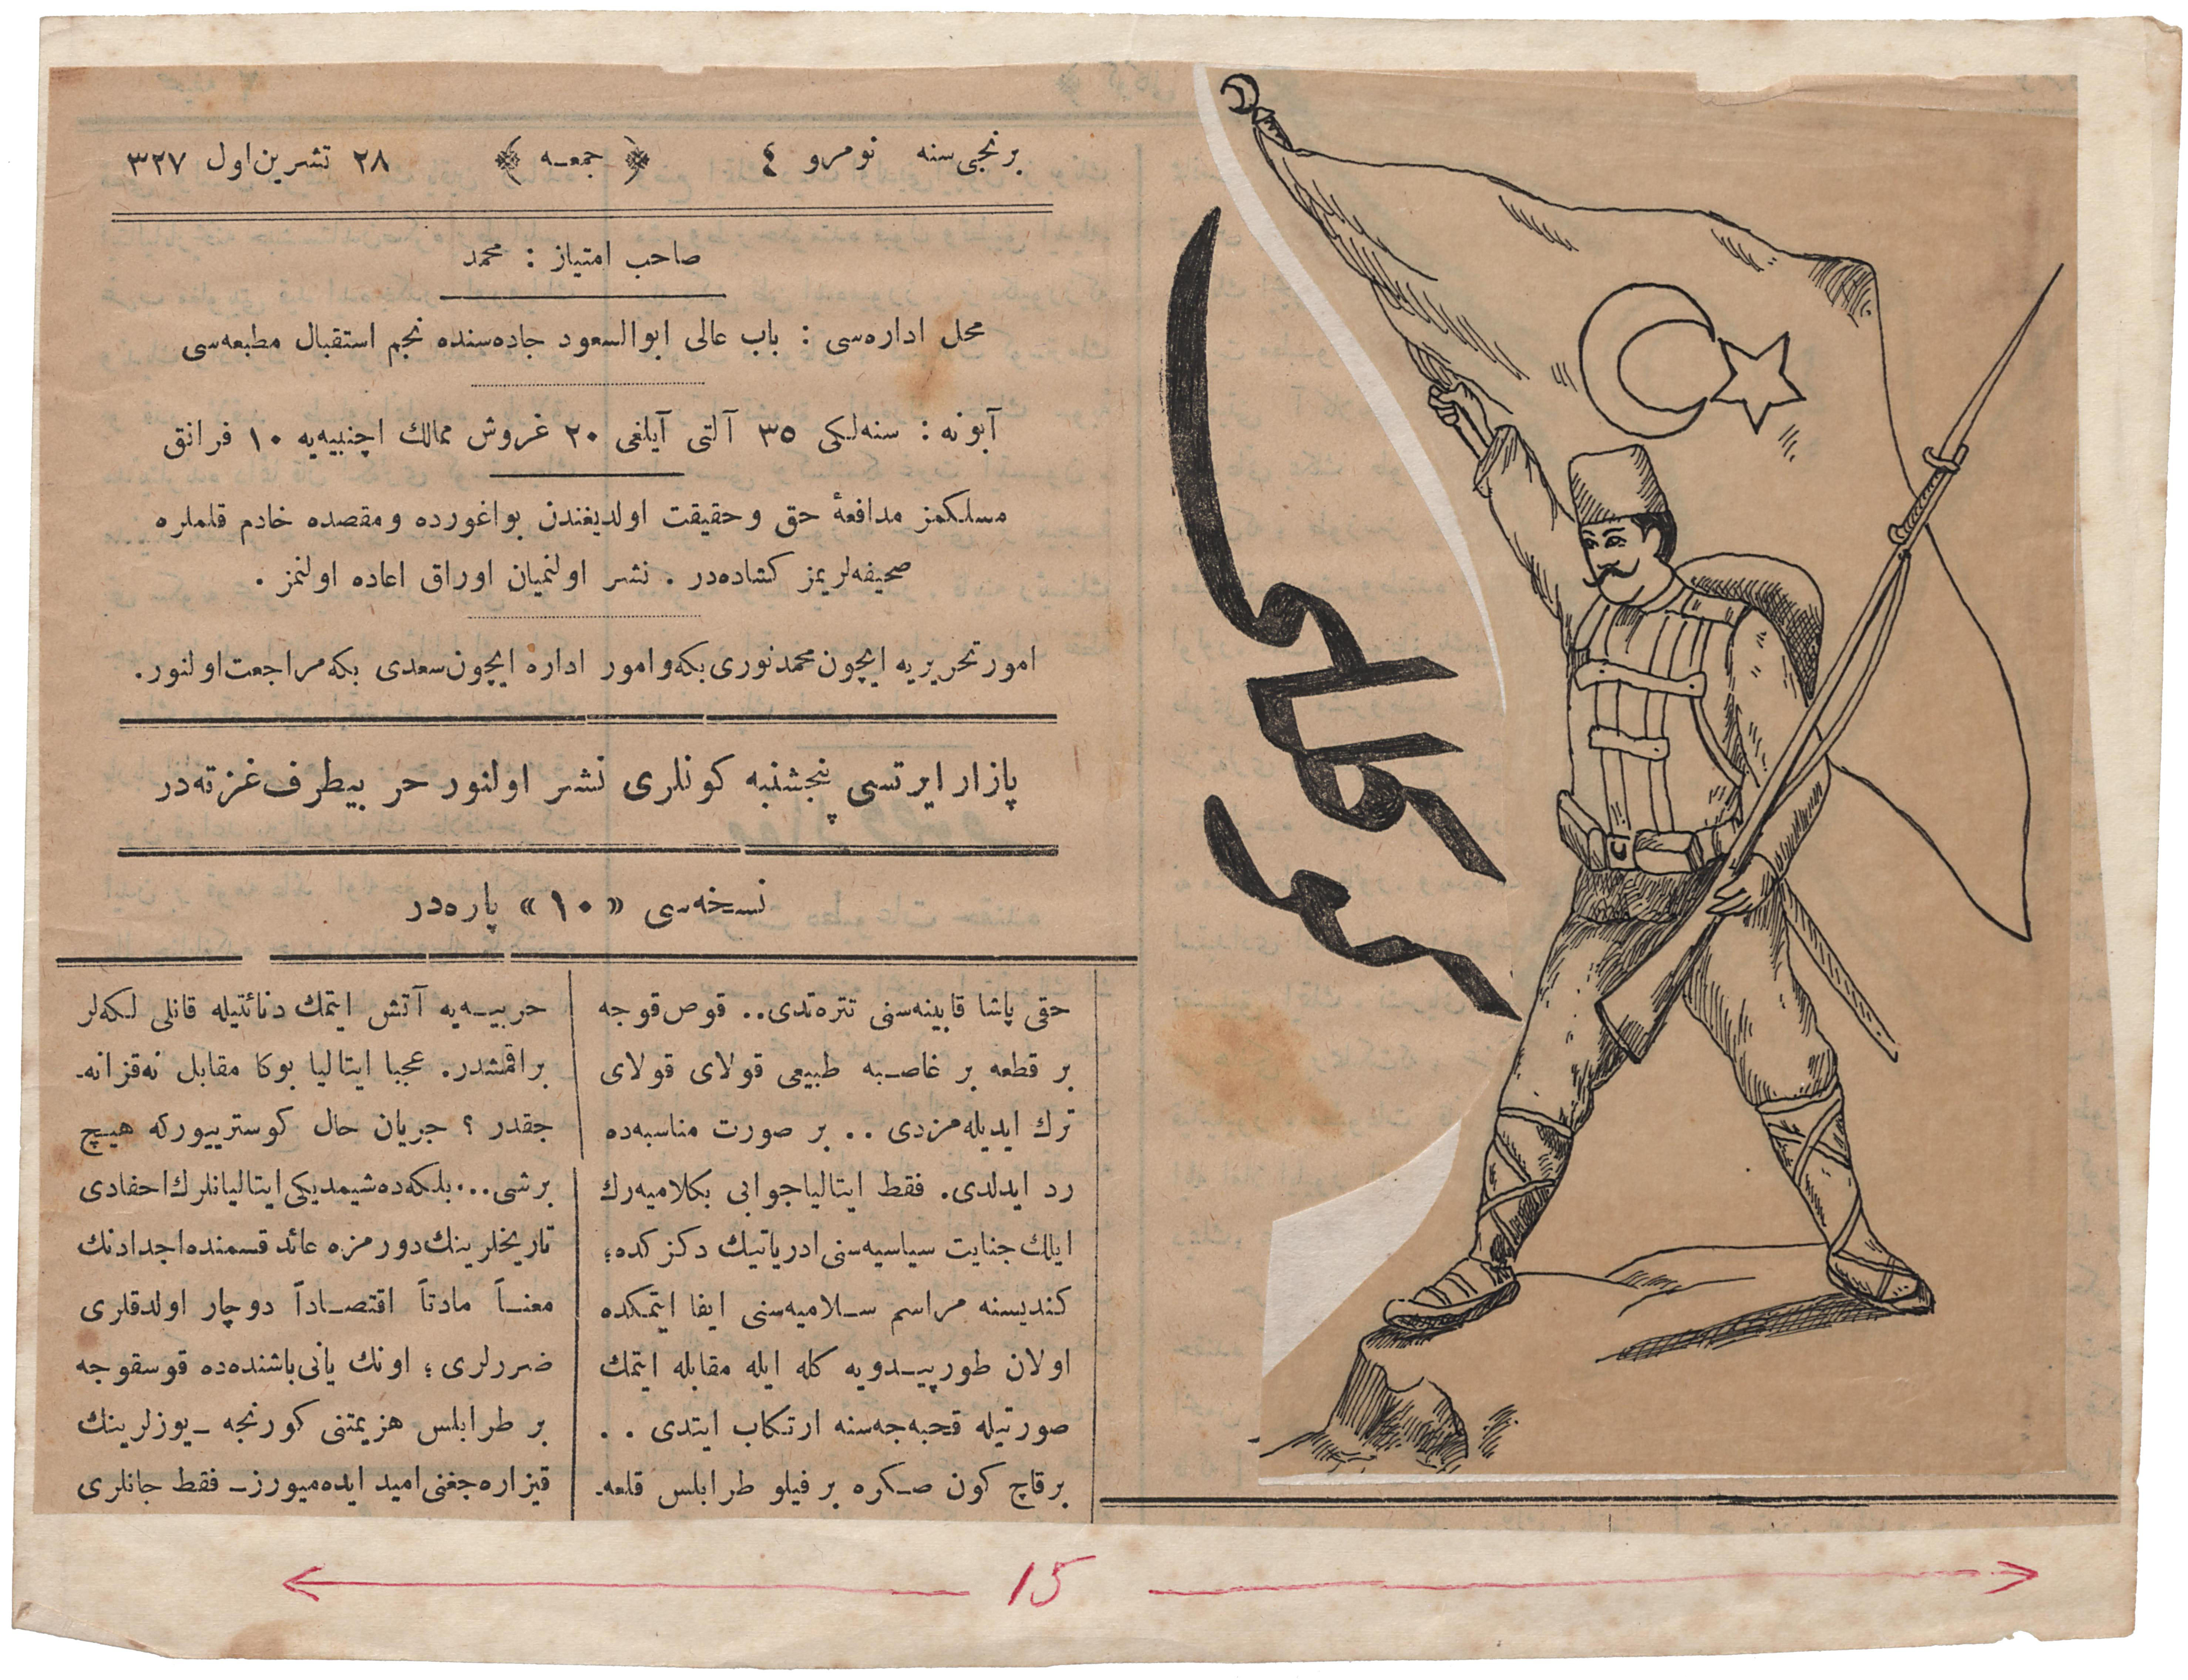 برنجی سنه نومرو ٤ ﴿ جمعه ﴾ ٢٨ تشرین اول ٣٢٧
صاحب امتیاز : محمد
محل اداره‌سی : باب عالی ابوالسعود جاده‌سنده نجم استقبال مطبعه‌سی
آبونه : سنه‌لکی ٣٥ آلتی آیلغی ٢٠ غروش ممالك اجنبیه‌یه ١٠ فرانق
مسلکمز مدافعهٔ حق وحقیقت اولدیغندن بواغورده ومقصده خادم قلملره
صحیفه‌لریمز کشاده‌در . نشر اولنمیان اوراق اعاده اولنمز .
امور تحریریه ایچون محمد نوری بکه وامور اداره ایچون سعدی بکه مراجعت اولنور.
پازار ایرتسی پنجشنبه کونلری نشر اولنور حر بیطرف غزته‌در
نسخه‌سی «١٠» پاره‌در
حقی پاشا قابینه‌سنی تتره‌تدی.. قوص قوجه
بر قطعه بر غاصبه طبیعی قولای قولای
ترك ایدیله‌مزدی .. بر صورت مناسبه‌ده
رد ایدلدی. فقط ایتالیا جوابی بکلامیه‌رك
ایلك جنایت سیاسیه‌سنی ادریاتیك دکزکده؛
کندیسنه مراسم سلامیه‌سنی ایفا ایتمکده
اولان طورپیدویه کله ایله مقابله ایتمك
صورتیله قحبه‌جه‌سنه ارتکاب ایتدی . .
برقاچ کون صکره بر فیلو طرابلس قلعه‌ـ
حربیه‌یه آتش ایتمك دنائتیله قانلی لکه‌لر
براقمشدر. عجبا ایتالیا بوکا مقابل نه قزانه‌ـ
جقدر ؟ جریان حال کوسترییورکه هیچ
برشی... بلکه‌ده شیمدیکی ایتالیانلرك احفادی
تاریخلرینك دورمزه عائد قسمنده اجدادنك
معناً مادتاً اقتصاداً دوچار اولدقلری
ضررلری ؛ اونك یانی باشنده‌ده قوسقوجه
بر طرابلس هزیمتنی کورنجه ـ یوزلرینك
قیزاره‌جغنی امید ایده‌میورز ـ فقط جانلری
15